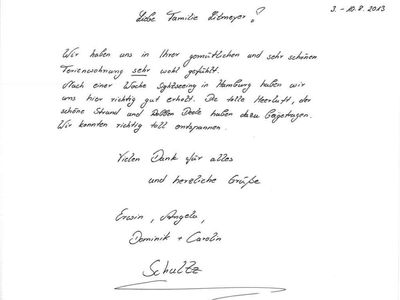 3. - 10.8.2013
Liebe Familie Ditmeyer!
Wir haben uns in Ihrer gemütlichen und sehr schönen
Ferienwohnung sehr wohl gefühlt.
Nach einer Woche Sightseeing in Hamburg haben wir
uns hier richtig gut erholt. Die tolle Meerluft, der
schöne Strand und haben dazu beigetragen.
Wir konnten richtig toll entspannen.
Vielen Dank für alles
und herzliche Grüße
Erwin, Angela,
Dominik + Carolin
Schultz